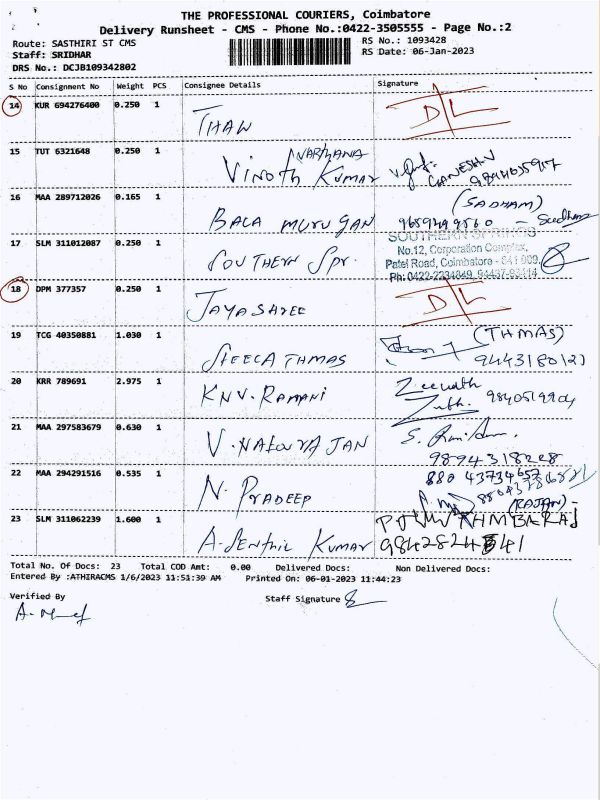 THE PROFESSIONAL COURIERS, Coimbatore
Delivery Runsheet - CMS - Phone No.:0422-3505555 - Page No.:2
Route: SASTHIRI ST CMS
RS No.: 1093428
Staff: SRIDHAR
RS Date: 06-Jan-2023
DRS No.: DCJB109342802
S No Consignment No Weight PCS Consignee Details Signature
14 KUR 694276400 0.250 1 THAW D/L
15 TUT 6321648 0.250 1 VINOTH KUMAR VARTHANA GANESHN
16 MAA 289712026 0.165 1 BALA MURUGAN (SADHAM)
17 SLM 311012087 0.250 1 SOUTHERN Spr.
SOUTHERN SPRINGS
No.12, Corporation Complex,
Patel Road, Coimbatore - 641 009.
Ph: 0422-2234849
18 DPM 377357 0.250 1 JAYASHREE D/L
19 TCG 40350881 1.030 1 SHEELA THMAS (THMAS)
20 KRR 789691 2.975 1 KNV. RAMANI
21 MAA 297583679 0.630 1 V. NATARAJAN
9894318228
22 MAA 294291516 0.535 1 N. PRADEEP (RAJAN)
23 SLM 311062239 1.600 1 A. SENTHIL KUMAR
Total No. Of Docs: 23 Total COD Amt: 0.00 Delivered Docs: Non Delivered Docs:
Entered By :ATHIRACMS 1/6/2023 11:51:39 AM Printed On: 06-01-2023 11:44:23
Verified By
Staff Signature